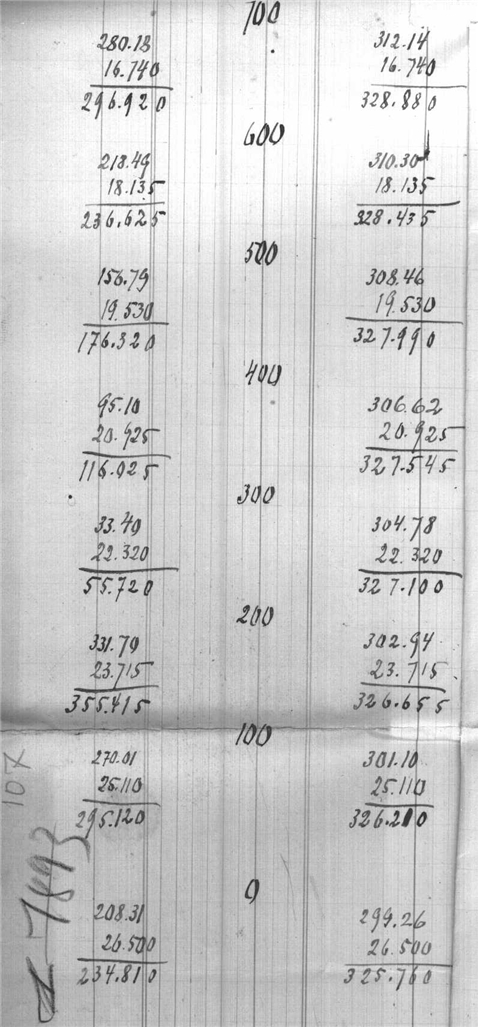 700
280.18 312.14
16.740 16.740
296.920 328.880
600
218.49 310.30
18.135 18.135
236.625 328.435
500
156.79 308.46
19.530 19.530
176.320 327.990
400
95.10 306.62
20.925 20.925
116.025 327.545
300
33.40 304.78
22.320 22.320
55.720 327.100
200
331.70 302.94
23.715 23.715
355.415 326.655
100
270.01 301.10
25.110 25.110
295.120 326.210
0
208.31 299.26
26.500 26.500
234.810 325.760
7893